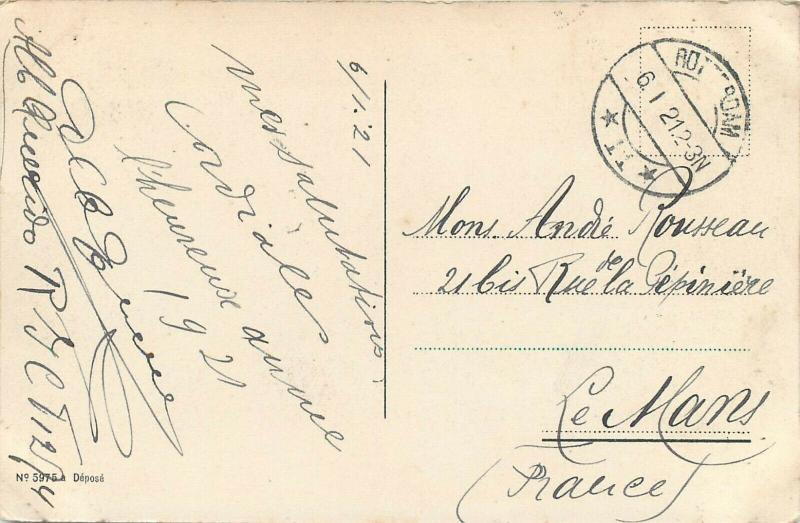 6/1.'21
mes salutations
Cordiales
l'heureuse année
1921
Alb Querido R I C 112/4
ROTTERDAM
6.I 21.2-3N
Mons. André Rousseau
21 bis Rue de la Pépinière
Le Mans
(France)
Nº 5975 a Déposé